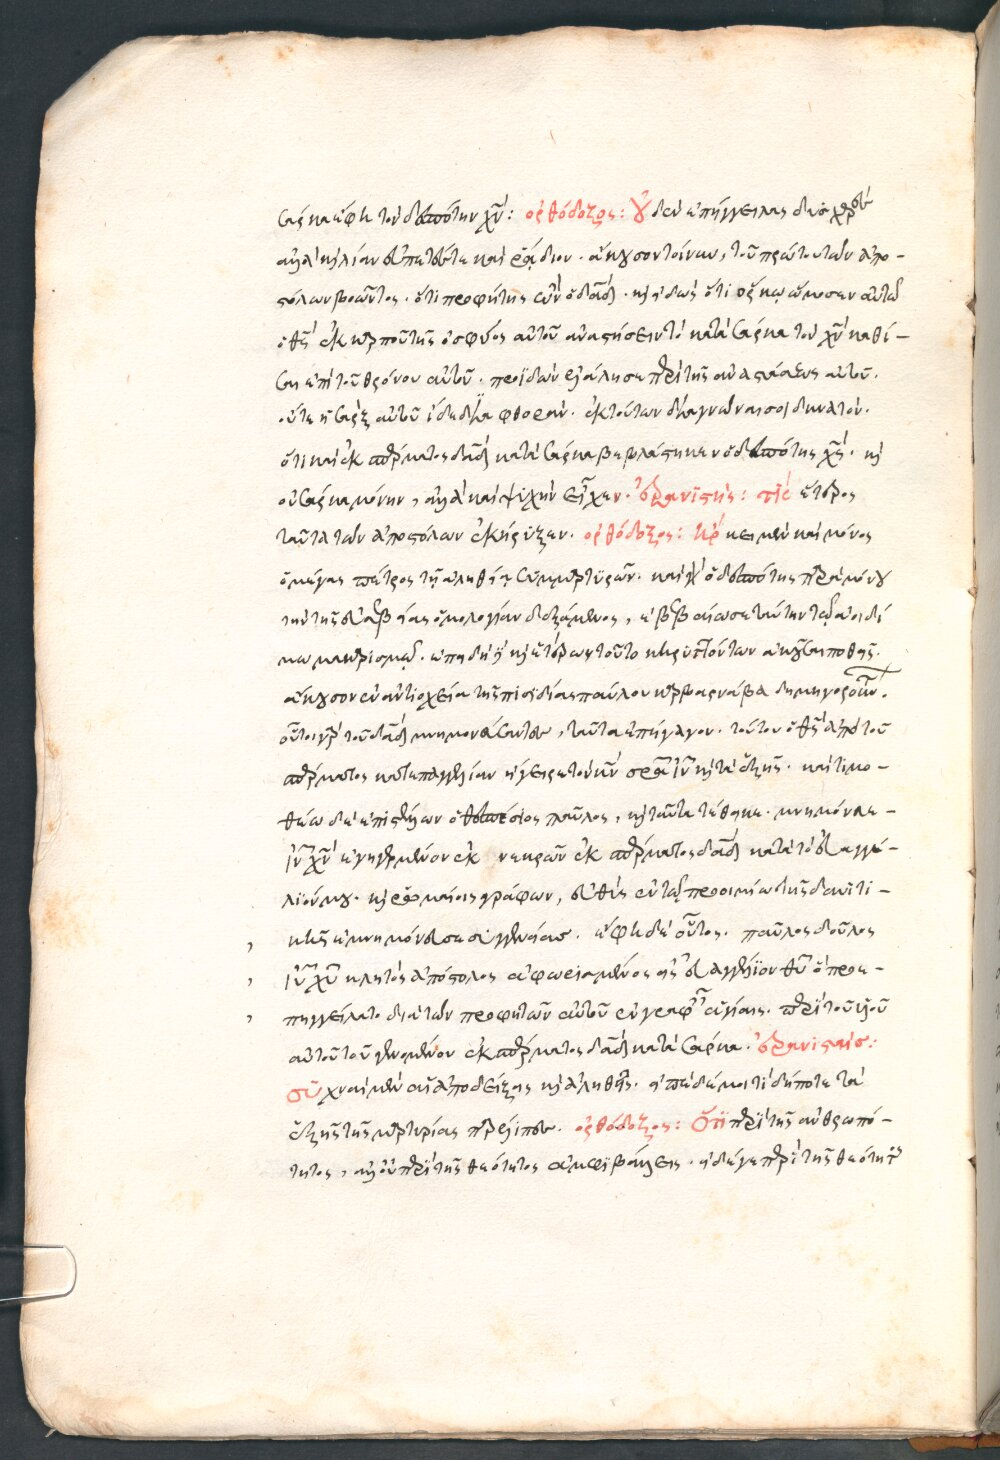 σάρκα ἔφη τὸν δεσπότην χν: ὀρθόδοξος: οὐδὲν ἐπήγγειλας δυσχερὲς
ἀλλὰ καὶ λίαν εὐπετές τε καὶ ῥάδιον. ἄκουσον τοίνυν, τοῦ πρώτου τῶν ἀπο-
στόλων βοῶντος. ὅτι προφήτης ὢν ὁ δαδ. καὶ εἰδὼς ὅτι ὅρκῳ ὤμοσεν αὐτῷ
ὁ θς ἐκ καρποῦ τῆς ὀσφύος αὐτοῦ ἀναστήσειν τὸ κατὰ σάρκα τὸν χν καθί-
σαι ἐπὶ τοῦ θρόνου αὐτοῦ. προϊδὼν ἐλάλησε περὶ τῆς ἀναστάσεως αὐτοῦ.
οὔτε ἡ σὰρξ αὐτοῦ ἴδε διαφθοράν. ἐκ τούτων διαγνῶναί σοι δυνατόν.
ὅτι καὶ ἐκ σπέρματος δαδ κατὰ σάρκα βεβλάστηκεν ὁ δεσπότης χς. καὶ
οὐ σάρκα μόνην, ἀλλὰ καὶ ψυχὴν εἶχεν. ἐρανιστής: τίς ἕτερος
ταῦτα τῶν ἀποστόλων ἐκήρυξεν. ὀρθόδοξος: ἤρκει μὲν καὶ μόνος
ὁ μέγας πέτρος τῇ ἀληθείᾳ συμμαρτυρῶν. καὶ γὰρ ὁ δεσπότης παρὰ μόνου
τὴν τῆς εὐσεβείας ὁμολογίαν δεξάμενος, ἐβεβαίωσε ταύτην τῷ ἀοιδί
μω μακαρισμῷ. ἐπειδὴ δὲ καὶ ἑτέρων τοῦτο κηρυττόντων ἀκοῦσαι ποθεῖς.
ἄκουσον ἐν ἀντιοχεία τῆς πισιδίας παύλου καὶ βαρνάβα δημηγορούντων.
οὗτοι γὰρ τοῦ δαδ μνημονεύσαντες, ταῦτα ἐπήγαγον. τούτου ὁ θς ἀπὸ τοῦ
σπέρματος κατ' ἐπαγγελίαν ἤγειρε τὸν ἡμῖν σρα ιν καὶ τὰ ἑξῆς. καὶ τιμο-
θέω δὲ ἐπιστέλλων ὁ θεσπέσιος παῦλος, καὶ ταῦτα τέθηκε. μνημόνευε-
ιν χν ἐγηγερμένον ἐκ νεκρῶν ἐκ σπέρματος δαδ κατὰ τὸ εὐαγγέ-
λιόν μου. καὶ ῥωμαίοις γράφων, εὐθὺς ἐν τῷ προοιμίω τῆς δαυϊτι-
κῆς ἐμνημόνευσε συγγενείας. ἔφη δὲ οὕτως. παῦλος δοῦλος
ιυ χυ κλητὸς ἀπόστολος ἀφωρισμένος εἰς εὐαγγέλιον θυ ὃ προε-
πηγγείλατο διὰ τῶν προφητῶν αὐτοῦ ἐν γραφαῖς ἁγίαις. περὶ τοῦ υἱοῦ
αὐτοῦ τοῦ γενομένου ἐκ σπέρματος δαδ κατὰ σάρκα. ἐρανιστής:
συχναὶ μὲν αἱ ἀποδείξεις καὶ ἀληθεῖς. εἰπὲ δέ μοι τί δήποτε τὰ
ἑξῆς τῆς μαρτυρίας παρέλιπες. ὀρθόδοξος: ὅτι περὶ τῆς ἀνθρωπό-
τητος, ἀλλ' οὐ περὶ τῆς θεότητος ἀμφιβάλλεις. εἰ δέ γε περὶ τῆς θεότητος